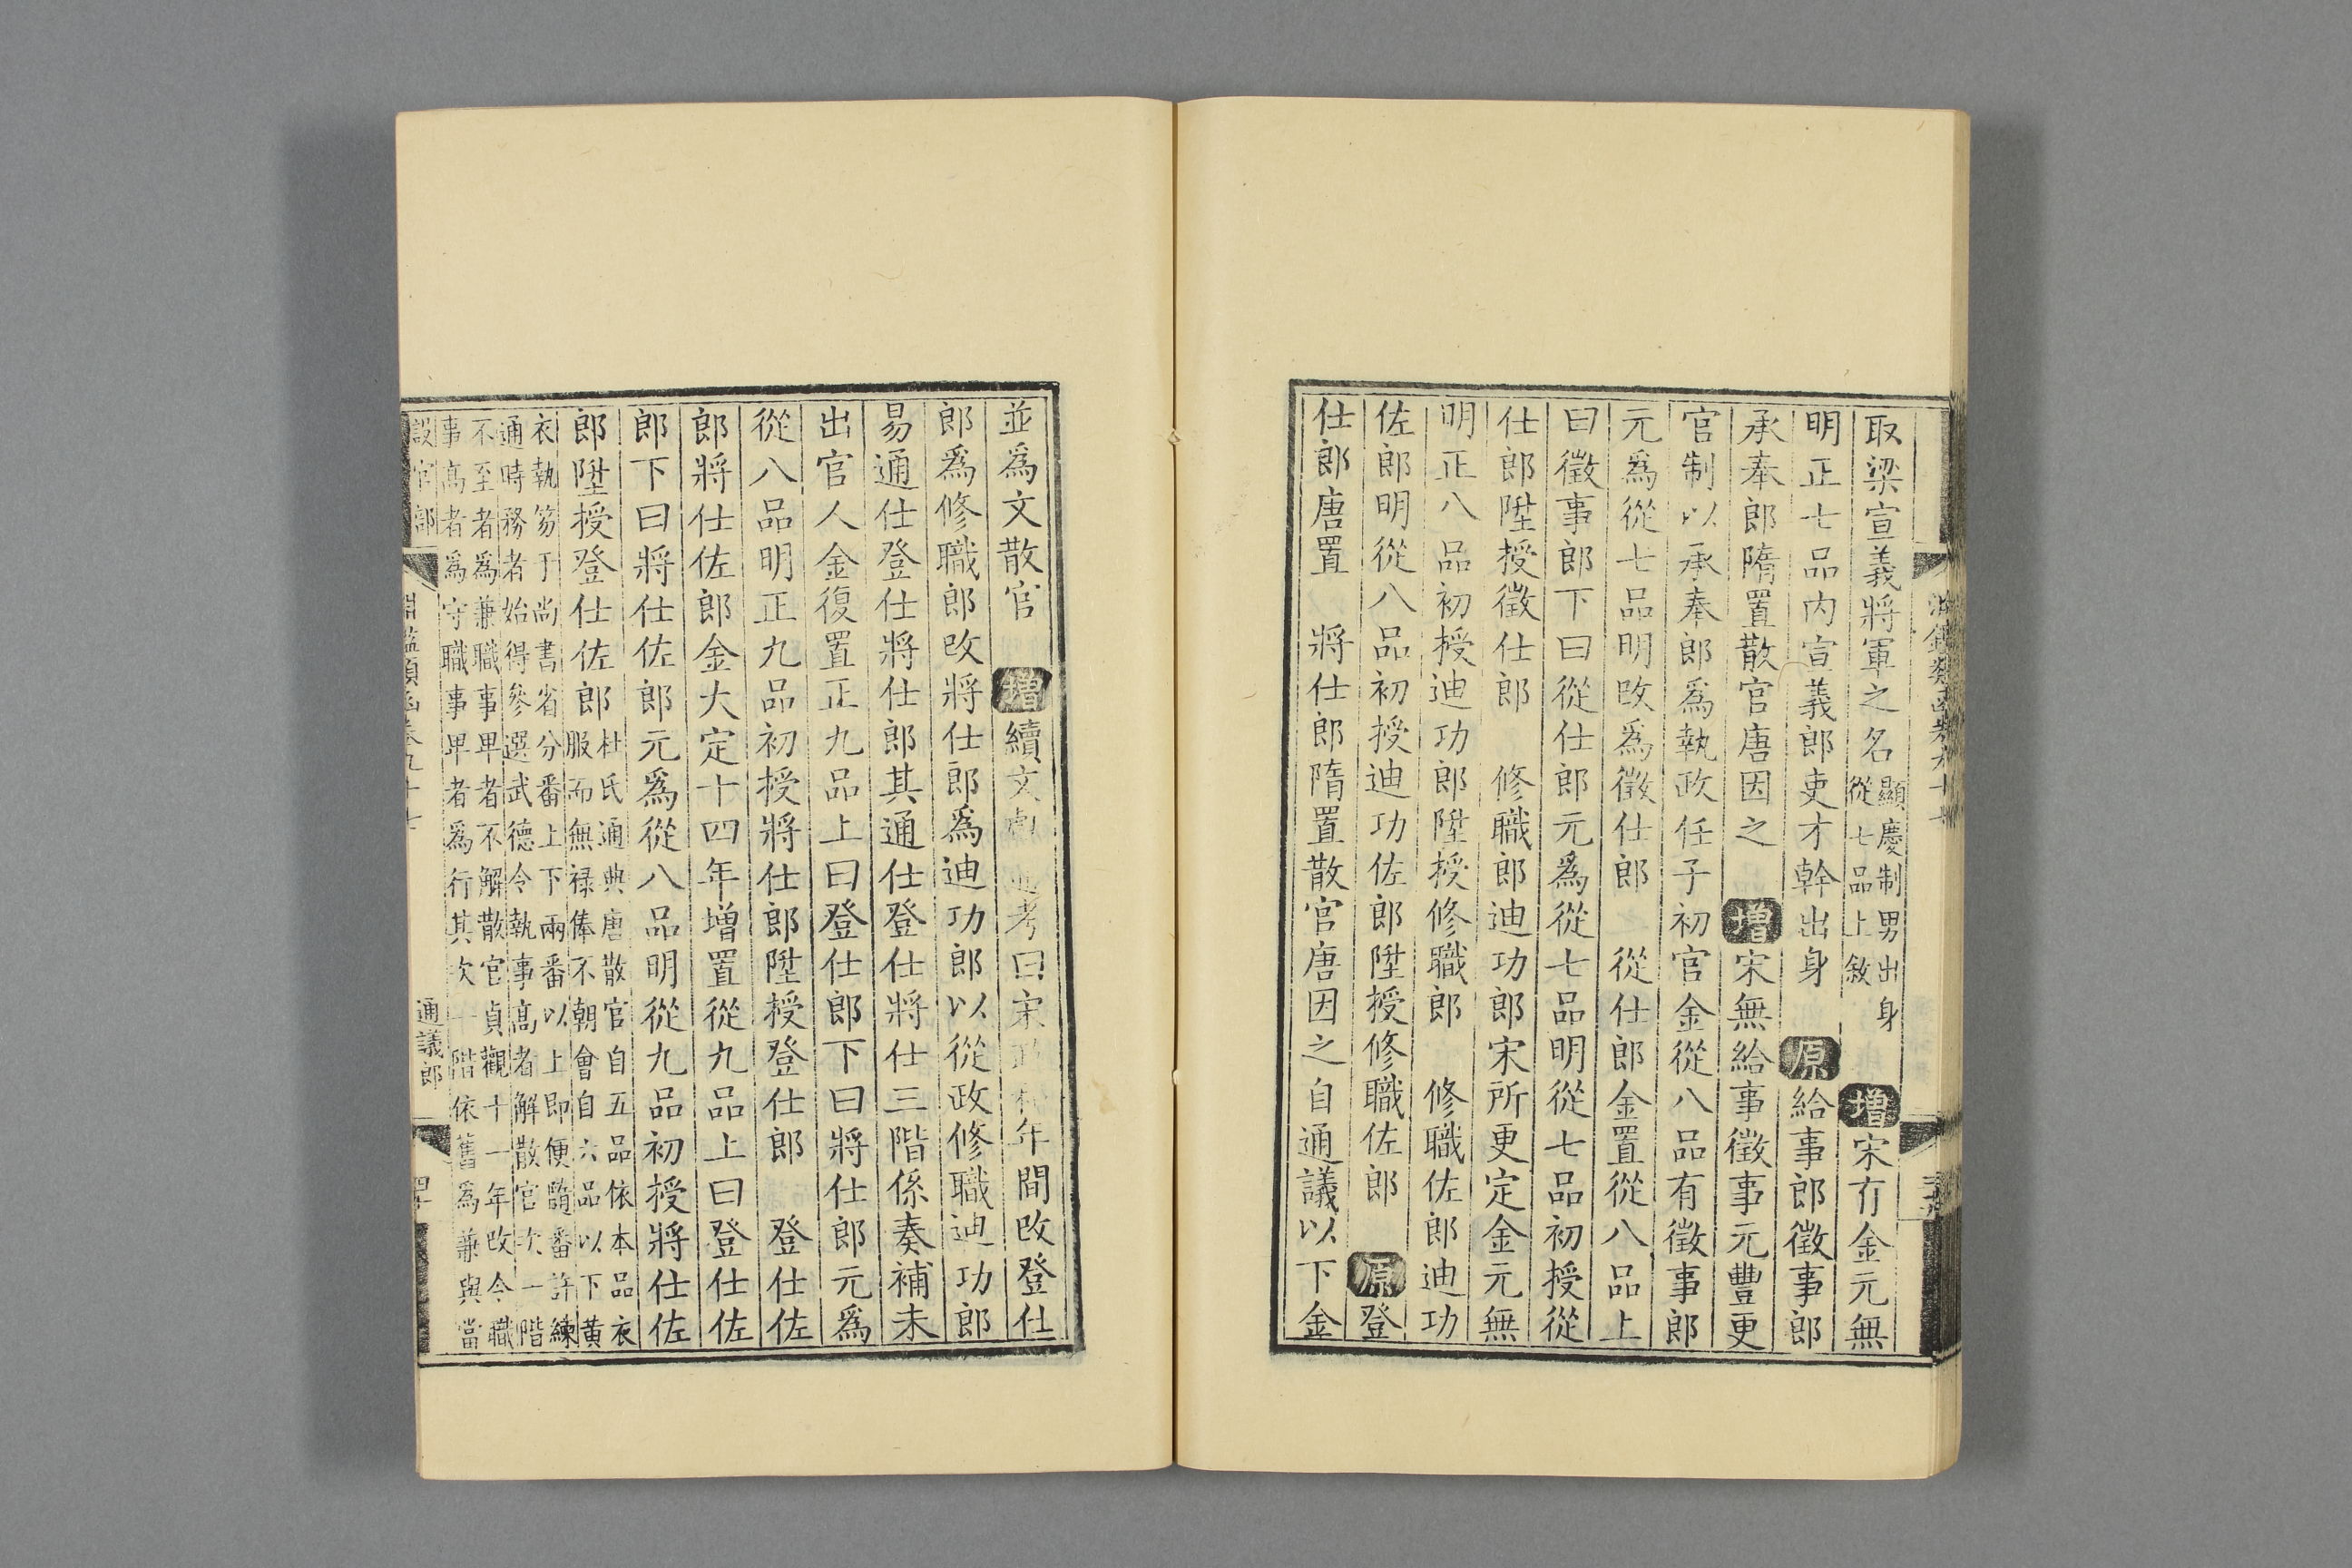 取梁宣義將軍之名顯慶制男出身從七品上敘增宋有金元無
明正七品内宣義郎吏才幹出身原給事郎徵事郎
承奉郎隋置散官唐因之增宋無給事徵事元豐更
官制以承奉郎爲執政任子初官金從八品有徵事郎
元爲從七品明改爲徵仕郎 從仕郎金置從八品上
曰徵事郎下曰從仕郎元爲從七品明從七品初授從
仕郎陞授徵仕郎 修職郎迪功郎宋所更定金元無
明正八品初授迪功郎陞授修職郎 修職佐郎迪功
佐郎明從八品初授迪功佐郎陞授修職佐郎 原登
仕郎唐置 將仕郎隋置散官唐因之自通議以下金
並爲文散官 增續文獻通考曰宋政和年間改登仕
郎爲修職郎改將仕郎爲迪功郎以從政修職迪功郎
易通仕登仕將仕郎其通仕登仕將仕三階係奏補未
出官人金復置正九品上曰登仕郎下曰將仕郎元爲
從八品明正九品初授將仕郎陞授登仕郎 登仕佐
郎將仕佐郎金大定十四年增置從九品上曰登仕佐
郎下曰將仕佐郎元爲從八品明從九品初授將仕佐
郎陞授登仕佐郎杜氏通典唐散官自五品依本品衣服而無祿俸不朝會自六品以下黄
衣執笏于尚書省分番上下兩番以上即便隨番許練通時務者始得參選武德令執事高者解散官欠一階
不至者爲兼職事卑者不解散官貞觀十一年改令職事高者爲守職事卑者爲行其欠一階依舊爲兼與當
設官部 淵鑑類函卷九十七 通議郎